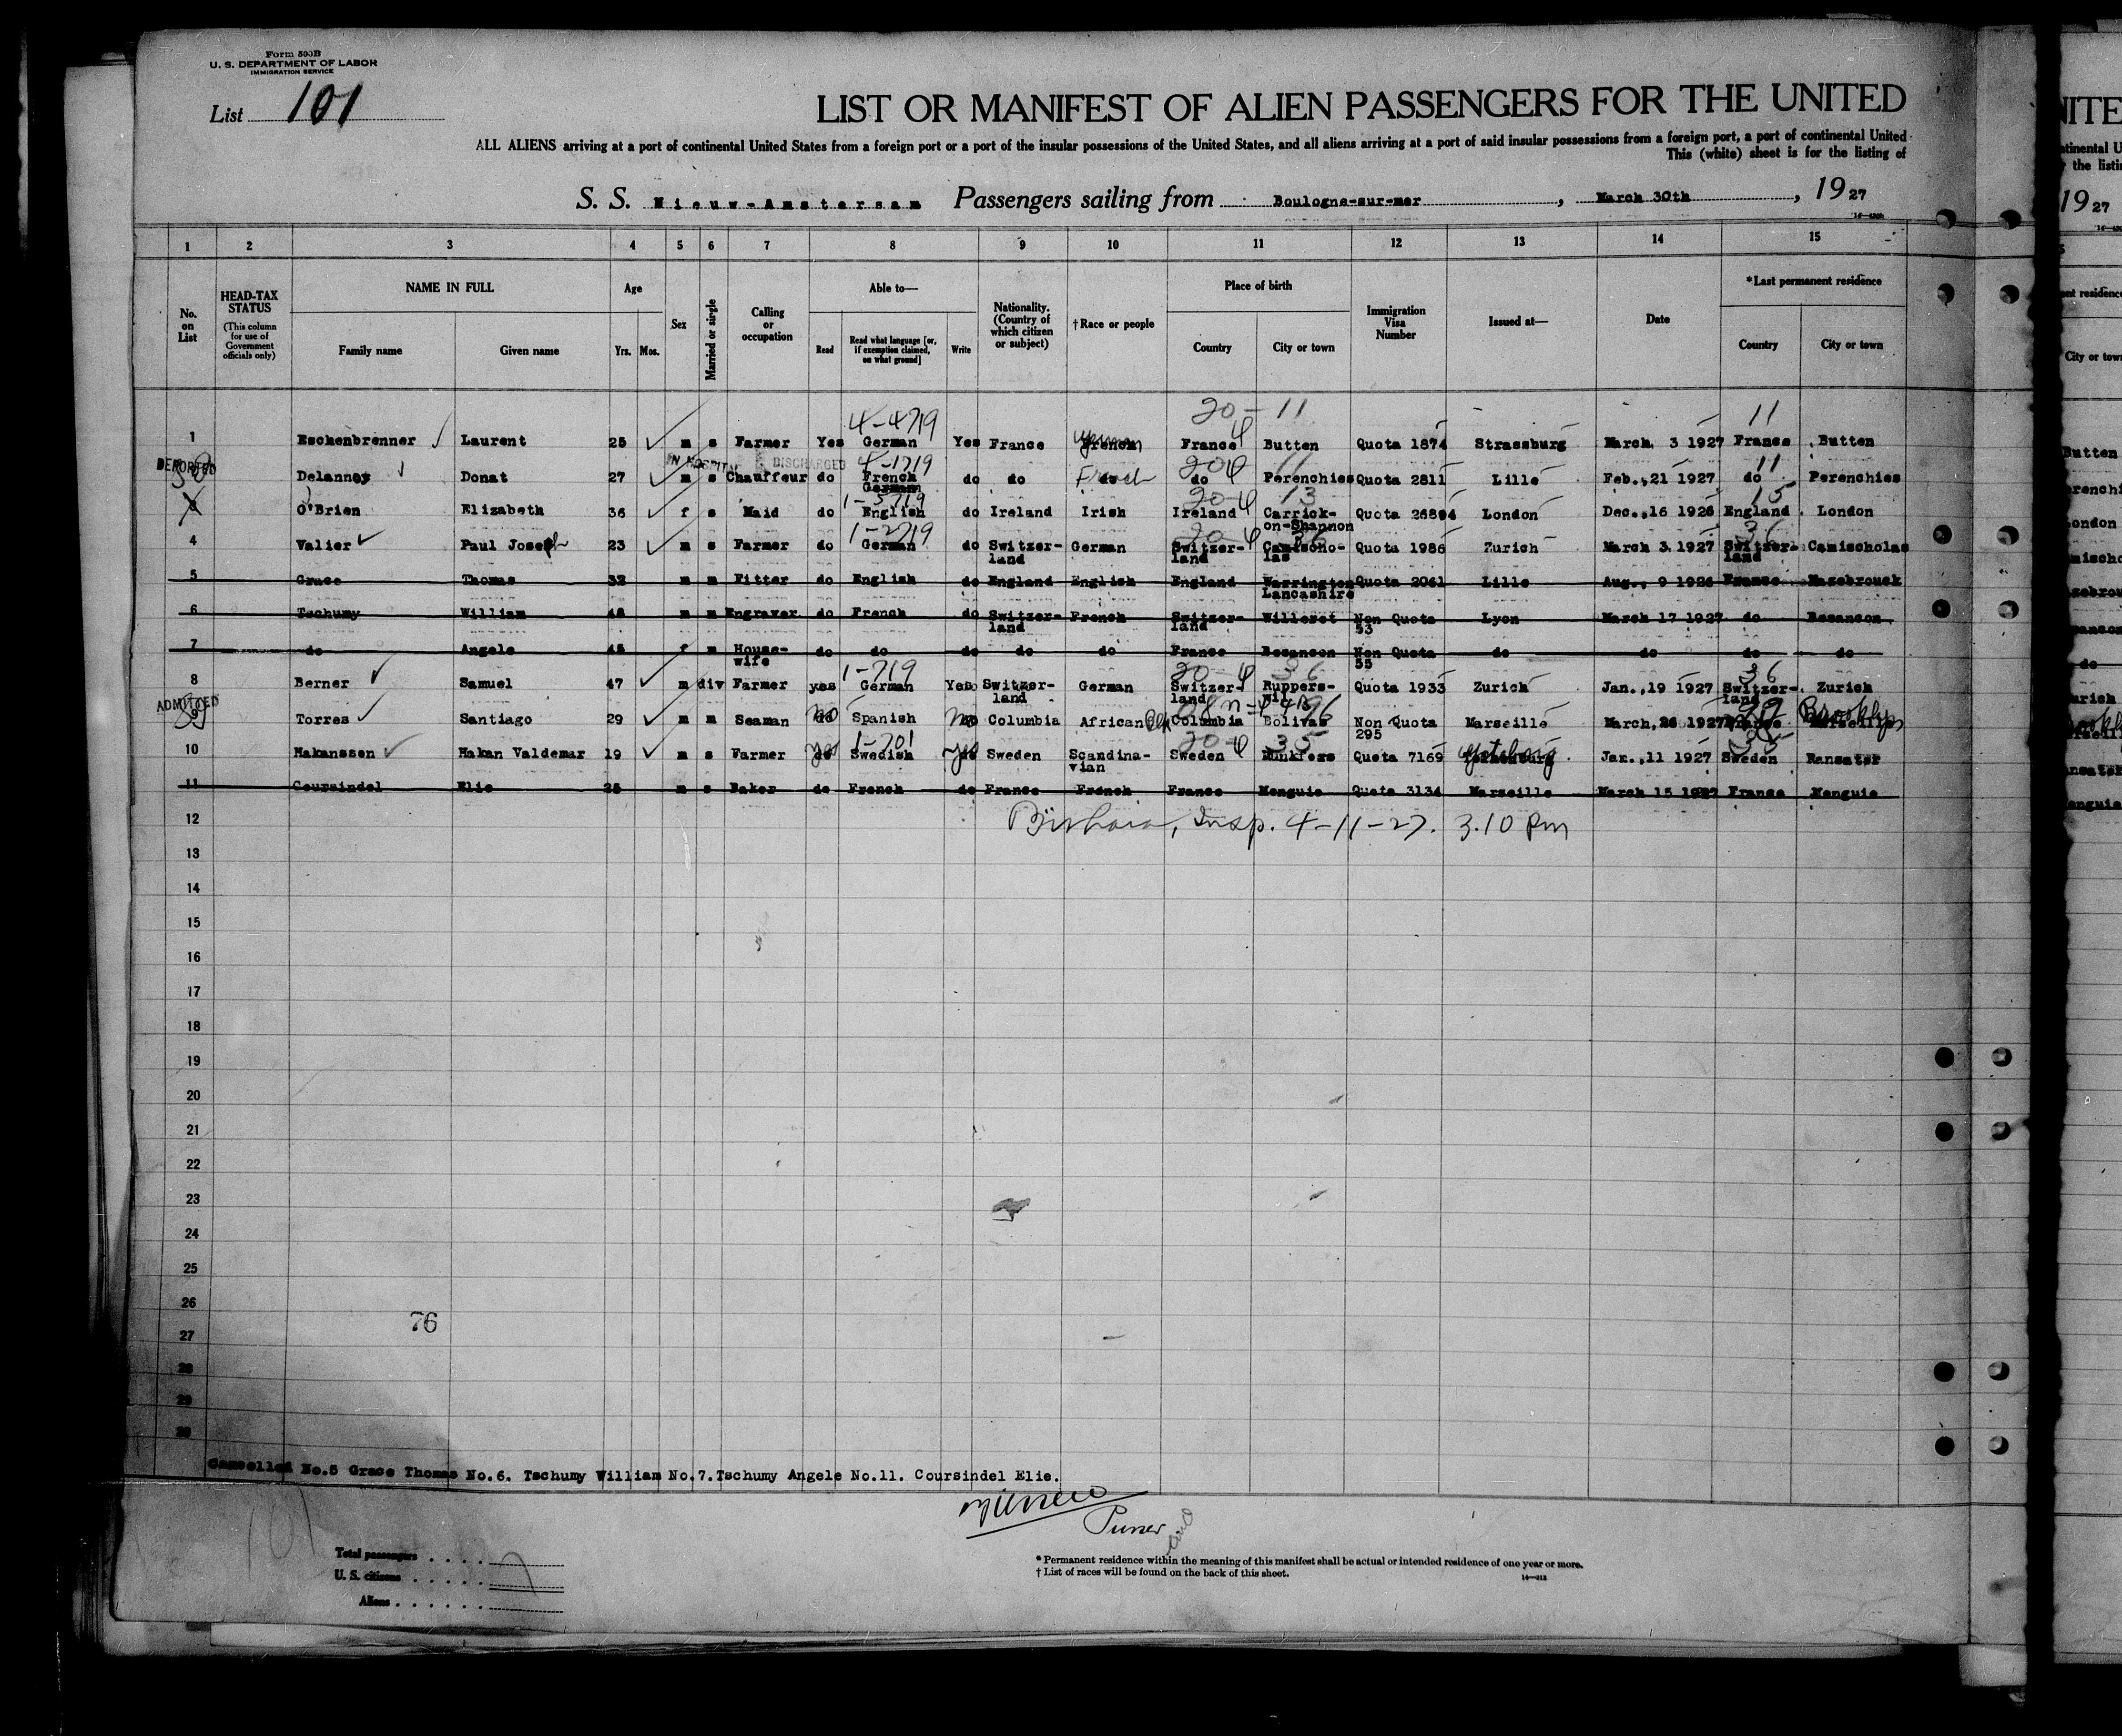 Form 500B
U. S. DEPARTMENT OF LABOR
IMMIGRATION SERVICE
List 101
LIST OR MANIFEST OF ALIEN PASSENGERS FOR THE UNITED
ALL ALIENS arriving at a port of continental United States from a foreign port or a port of the insular possessions of the United States, and all aliens arriving at a port of said insular possessions from a foreign port, a port of continental United
This (white) sheet is for the listing of
S. S. Nieuw-Amstersam Passengers sailing from Boulogne-sur-mer, March 30th, 1927
1 2 3 4 5 6 7 8 9 10 11 12 13 14 15
No. on List
HEAD-TAX STATUS (This column for use of Government officials only)
NAME IN FULL Family name Given name
Age Yrs. Mos.
Sex
Married or single
Calling or occupation
Able to— Read Read what language [or, if exemption claimed, on what ground] Write
Nationality. (Country of which citizen or subject)
†Race or people
Place of birth Country City or town
Immigration Visa Number
Issued at—
Date
*Last permanent residence Country City or town
4-4719 20-11 11
1 Eschenbrenner Laurent 25 m s Farmer Yes German Yes France French German France Butten Quota 1874 Strassburg March. 3 1927 France Butten
DEPORTED IN HOSPITAL DISCHARGED 4-1719 20 11 11
Delannoy Donat 27 m s Chauffeur do French German do do do French do Perenchies Quota 2811 Lille Feb.,21 1927 do Perenchies
1-5719 20-4 13 15
O'Brien Elizabeth 36 f s Maid do English do Ireland Irish Ireland Carrick-on-Shannon Quota 26804 London Dec.,16 1926 England London
1-2719 20 36 36
4 Valier Paul Joseph 23 m s Farmer do German do Switzer-land German Switzer-land Camischo-las Quota 1986 Zurich March 3.1927 Switzer-land Camischolas
5 Grace Thomas 32 m m Fitter do English do England English England Warrington Lancashire Quota 2061 Lille Aug., 9 1926 France Hazebrouck
6 Tschumy William 48 m m Engraver do French do Switzer-land French Switzer-land Willeret Non Quota 53 Lyon March 17 1927 do Besancon
7 do Angele 45 f m House-wife do do do do do France Besancon Non Quota 55 do do do do
1-719 20-4 36 36
8 Berner Samuel 47 m div Farmer yes German Yes Switzer-land German Switzer-land Ruppers-wil Quota 1933 Zurich Jan.,19 1927 Switzer-land Zurich
ADMITTED
9 Torres Santiago 29 m m Seaman do No Spanish No Columbia African Blk Columbia Bolivas Non Quota 295 Marseille March,26 1927 France Marseille Brooklyn
1-701 20-4 35 35
10 Hakanssen Hakan Valdemar 19 m s Farmer do yes Swedish do yes Sweden Scandina-vian Sweden Munkfors Quota 7169 Goteborg Jan.,11 1927 Sweden Ransater
11 Coursindel Elie 25 m s Baker do French do France French France Menguie Quota 3134 Marseille March 15 1927 France Menguie
12 Insp. 4-11-27. 3.10 Pm
13
14
15
16
17
18
19
20
21
22
23
24
25
26
76
27
28
29
30
Cancelled No.5 Grace Thomas No.6. Tschumy William No.7.Tschumy Angele No.11. Coursindel Elie.
Total passengers
U. S. citizens
Aliens
* Permanent residence within the meaning of this manifest shall be actual or intended residence of one year or more.
† List of races will be found on the back of this sheet.